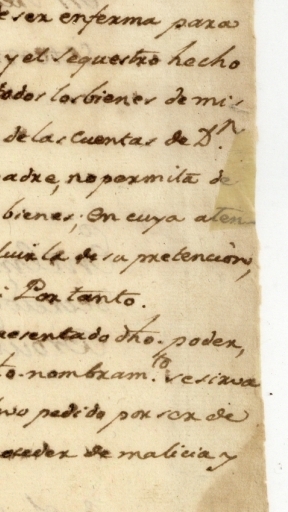 e ser enferma para
y el sequestro hecho
todos los bienes de mis
de las Cuentas de D.n
padre, no permita de
bienes; En cuya aten
luirla de su pretención,
Por tanto.
resentado dho. poder,
to. nombram.to se sirva
pedido por ser de
oceder de malicia y